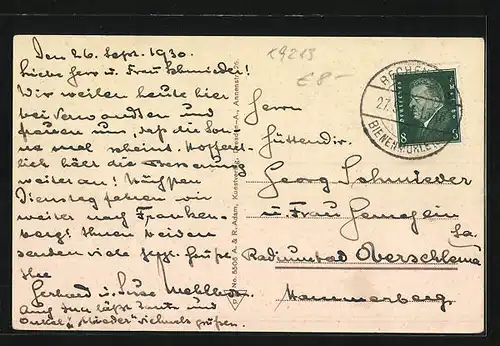 Den 26. Sept. 1930.
Liebe Herr u. Frau Schmieder!
Wir weilen heute hier
bei Verwandten und
freuen uns, daß die Son-
ne mal scheint. Hoffent-
lich hält die
weiter an! Nächsten
Dienstag fahren wir
weiter nach Franken-
berg! Ihnen beiden
senden viele herzl. Grüße
Ihre
Gerhard u. Luise
Auch Inge läßt Tante und
Onkel „Mieder" vielmals grüßen.
No. 5506 A. & R. Adam, Kunstverlag, Dresden-A., Annenstr.
19213
€ 8-
BIENENMÜHLE
27.
DEUTSCHES REICH
8 8
Herrn
Hüttendir.
Georg Schmieder
u. Frau Gemahlin
Sa.
Radiumbad Oberschlema